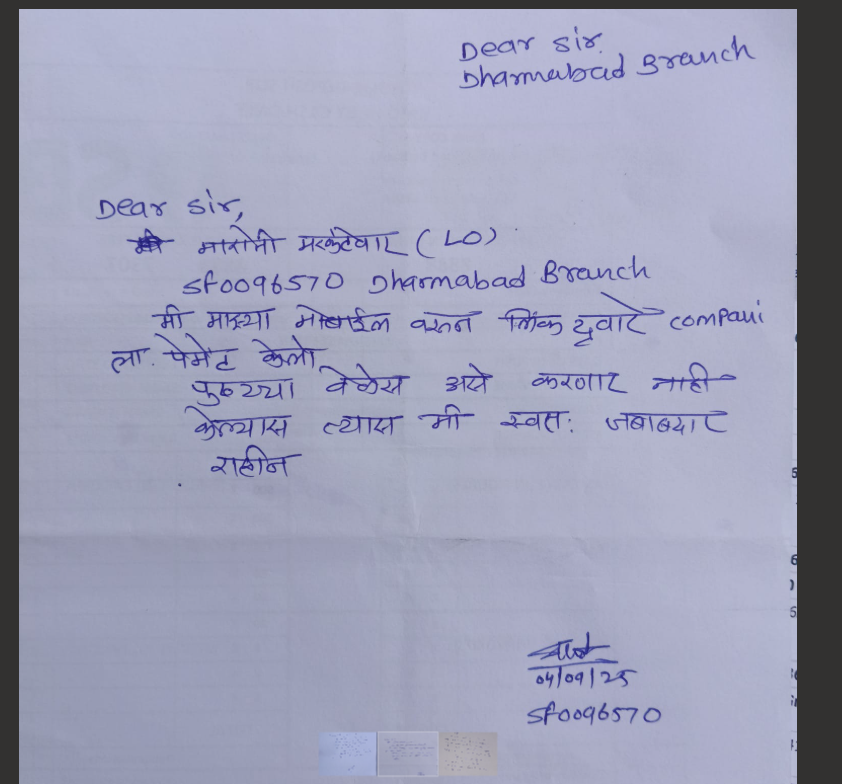 Dear Sir.
Dharmabad Branch
Dear Sir,
मारोती मरकंटेवार (LO)
SF0096570 Dharmabad Branch
मी माझ्या मोबाईल वरून लिंक द्वारे compani
ला. पेमेंट केलो
पुढच्या वेळेस असे करणार नाही
केल्यास त्यास मी स्वतः जबाबदार
राहीन
04/09/25
SF0096570